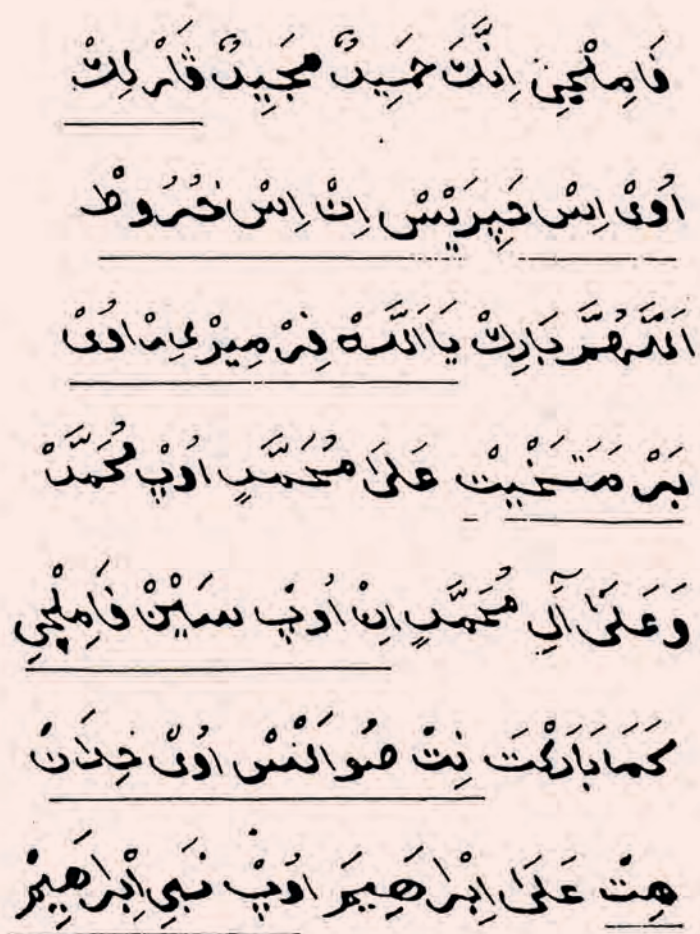 فَامِلْچِيْ اِنَّكَ حَمِيدٌ مَجِيدٌ ڤَارْلِكْ
اُوِىْ اِسْ خَپِرَيْسْ اِنْ اِسْ خُرُوطْ
اَللَّهُمَّ بَارِكْ يَا اَللَّهْ فِرْ مِيرْ اُوِىْ
بَرْمَتَخَيْتْ عَلَىٰ مُحَمَّدٍ اُوپْ مُحَمَّدْ
وَعَلَىٰ آلِ مُحَمَّدٍ اِنْ اُوپْ سَيْنْ فَامِلْچِي
كَمَا بَارَكْتَ نِتْ صُو اُوِىْ خِدَانْ
هِتْ عَلَىٰ اِبْرَاهِيمَ اُوپْ نَبِي اِبْرَاهِيمْ